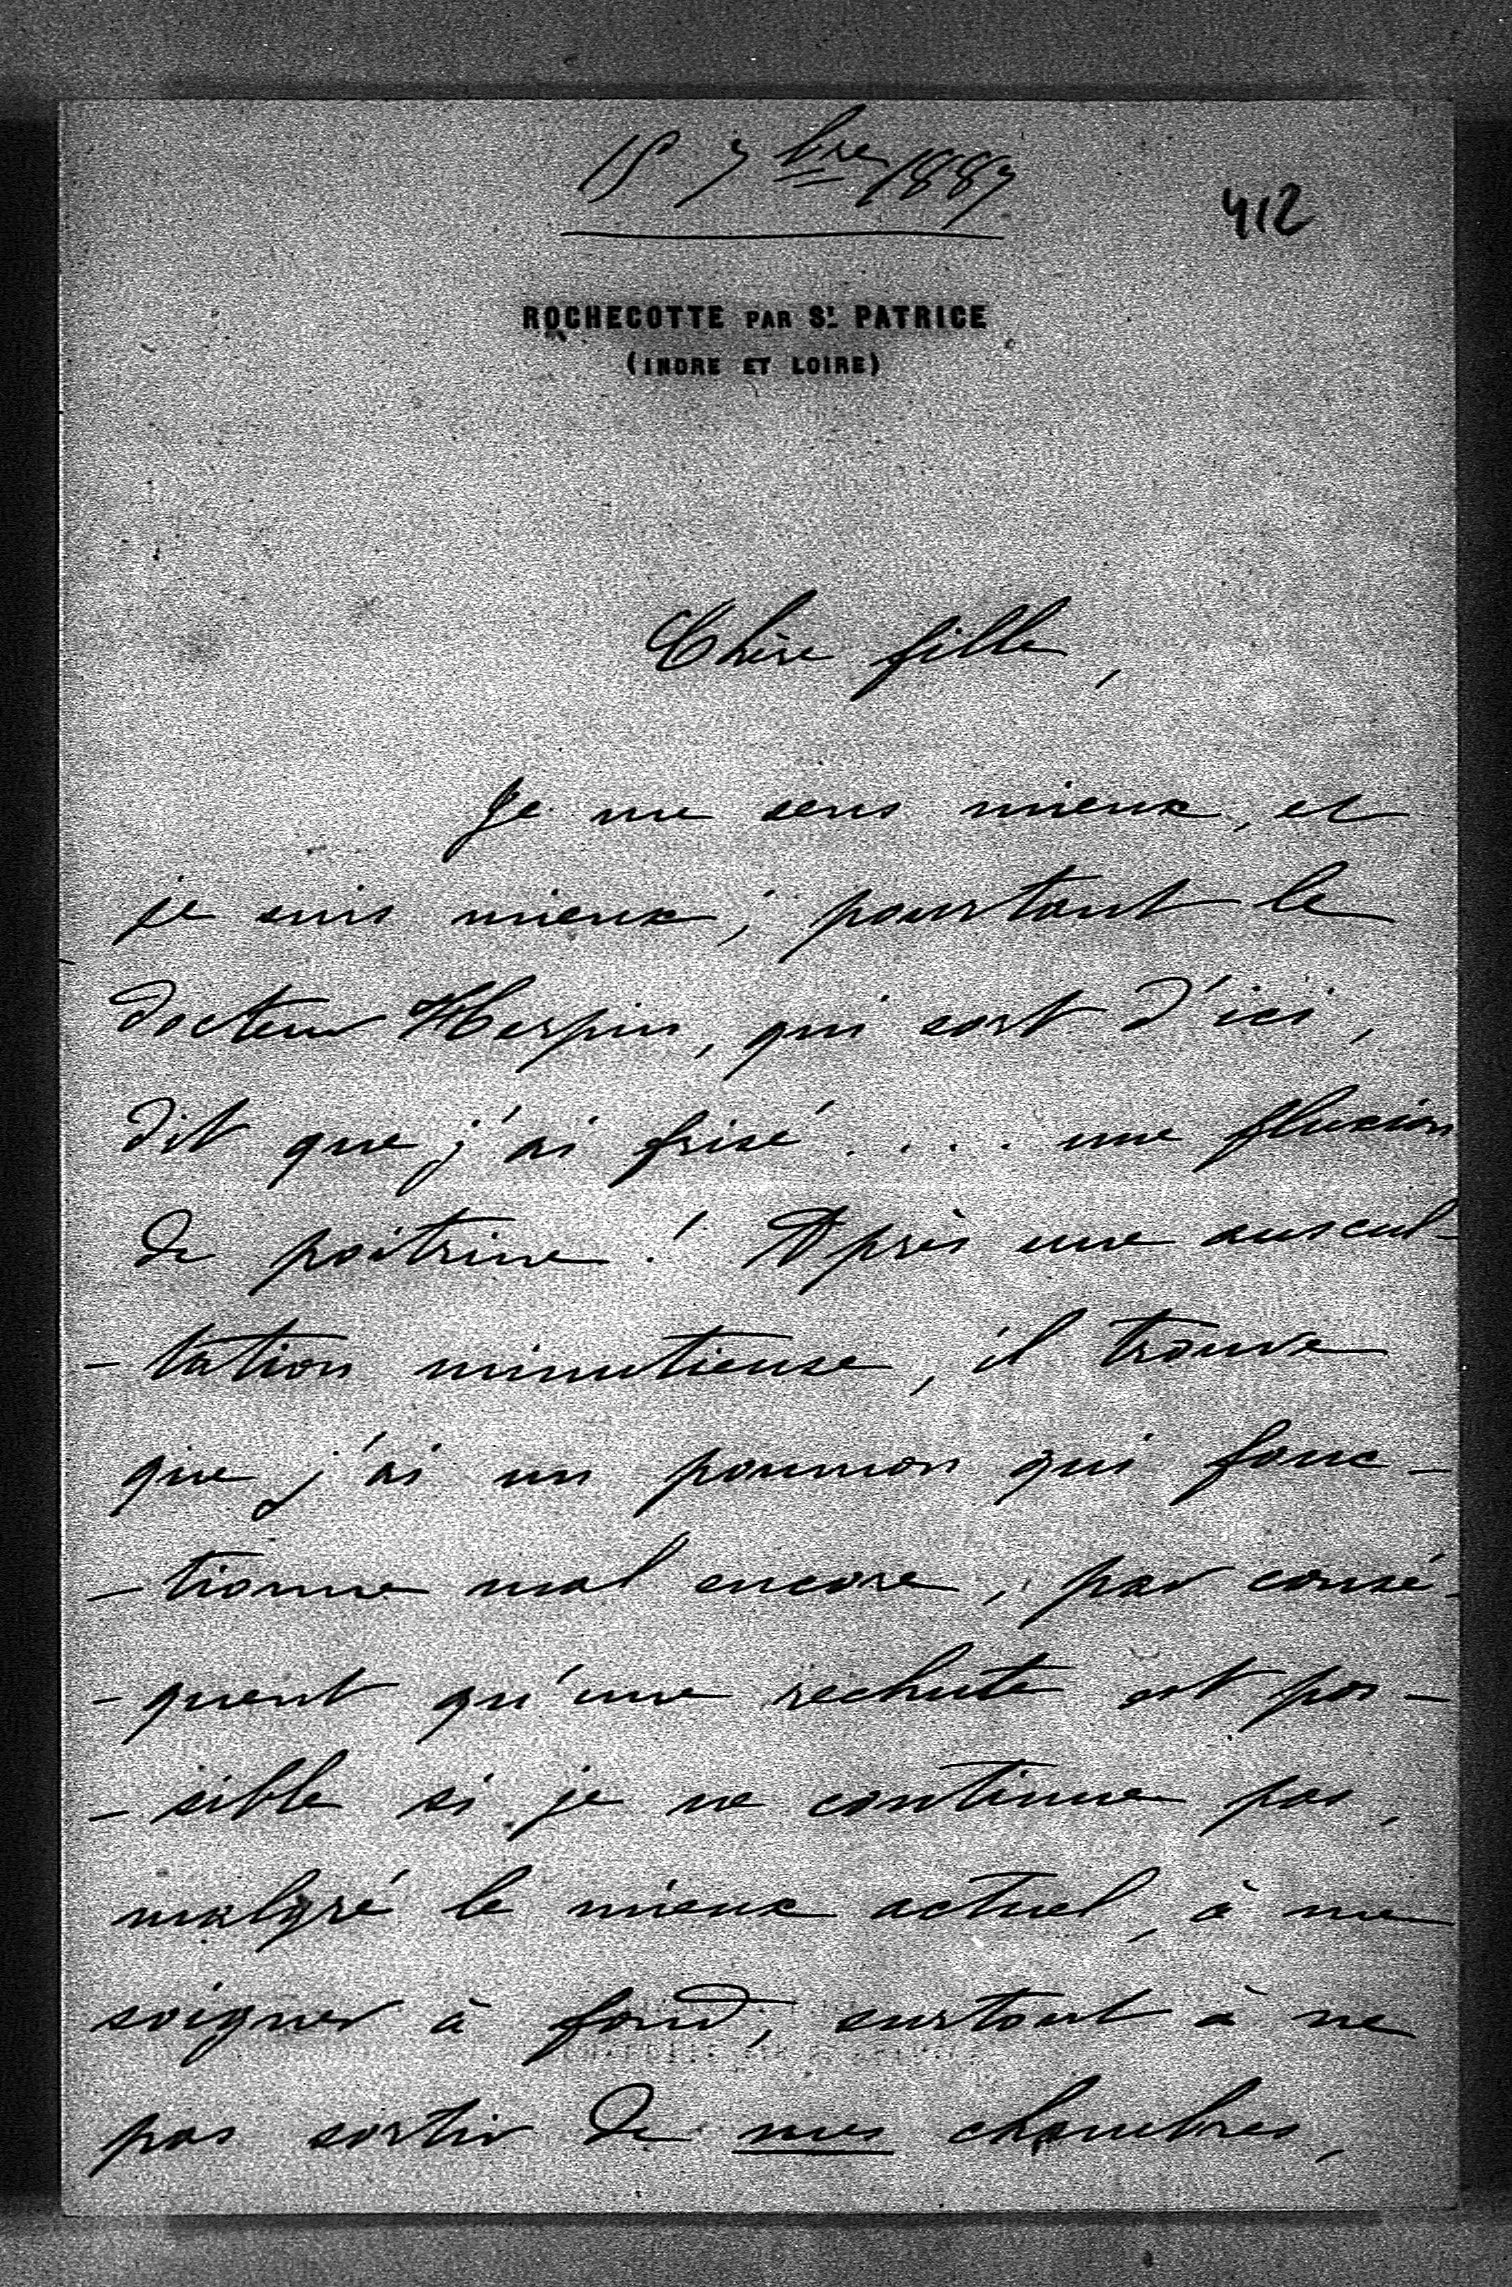 15 7bre 1887
412
ROCHECOTTE PAR ST. PATRICE
(INDRE ET LOIRE)
Chère fille,
Je me sens mieux, et
je suis mieux ; pourtant le
docteur Herpin, qui sort d'ici,
dit que j'ai frisé . . . une fluxion
de poitrine ! Après une auscul-
-tation minutieuse, il trouve
que j'ai un poumon qui fonc-
-tionne mal encore, par consé-
-quent qu'une rechute est pos-
-sible si je ne continue pas,
malgré le mieux actuel, à me
soigner à fond, surtout à ne
pas sortir de mes chambres,